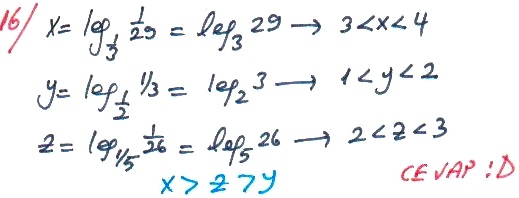 16/ x = log_{1/3} 1/29 = log_3 29 → 3 < x < 4
y = log_{1/2} 1/3 = log_2 3 → 1 < y < 2
z = log_{1/5} 1/26 = log_5 26 → 2 < z < 3
x > z > y
CEVAP : D